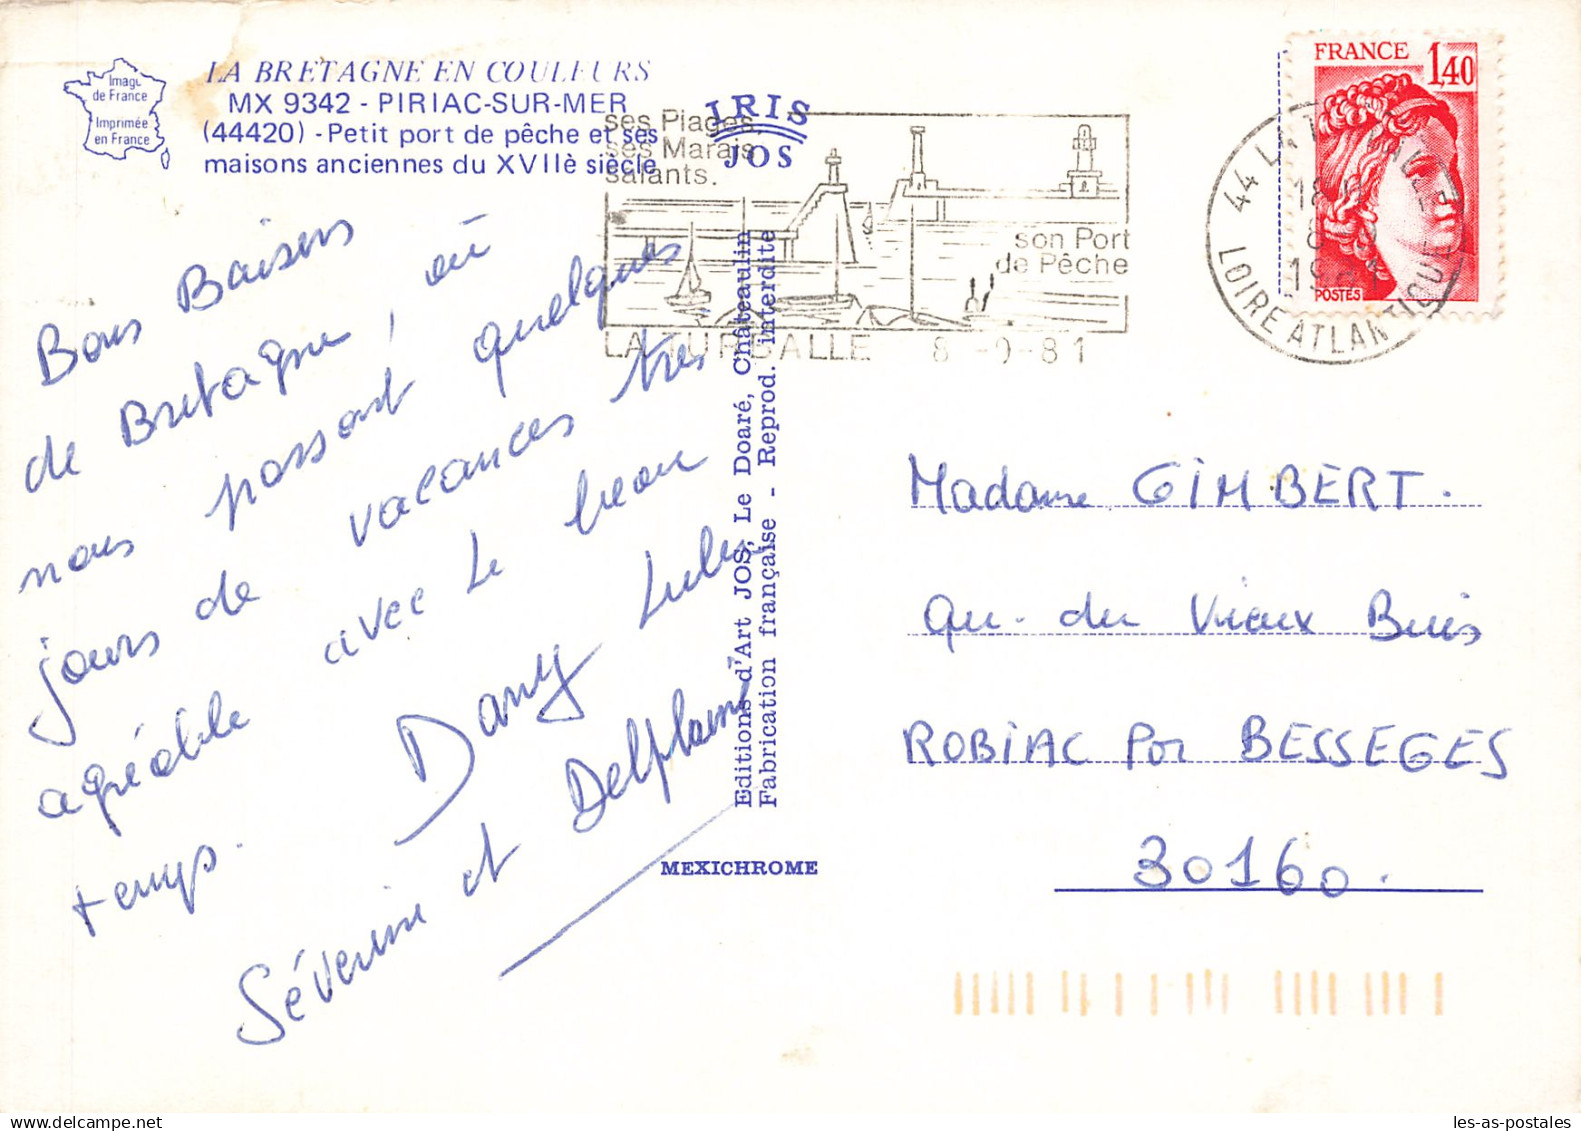 Image
de France
Imprimée
en France
LA BRETAGNE EN COULEURS
MX 9342 - PIRIAC-SUR-MER
(44420) - Petit port de pêche et ses
maisons anciennes du XVIIè siècle
IRIS
JOS
ses Plages,
ses Marais
salants.
son Port
de Pêche
LA TURBALLE 8 -9-81
FRANCE
1,40
POSTES
44 LA TURBALLE
18
8-9
1981
LOIRE ATLANTIQUE
Bons Baisers
de Bretagne, où
nous passons quelques
jours de vacances très
agréable avec le beau
temps.
Dany
Séverine et Delphine
Editions d'Art JOS, Le Doaré, Châteaulin
Fabrication française - Reprod. interdite
MEXICHROME
Madame GIMBERT.
Qu. du Vieux Buis
ROBIAC Par BESSEGES
30160.
les-as-postales